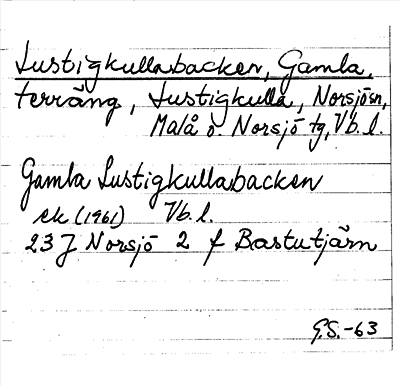 Lustigkullabacken, Gamla,
terräng, Lustigkulla, Norsjö sn,
Malå o Norsjö tg, Vb. l.
Gamla Lustigkullabacken
ek (1961) Vb. l.
23 J Norsjö 2 f Bastutjärn
G.S. -63